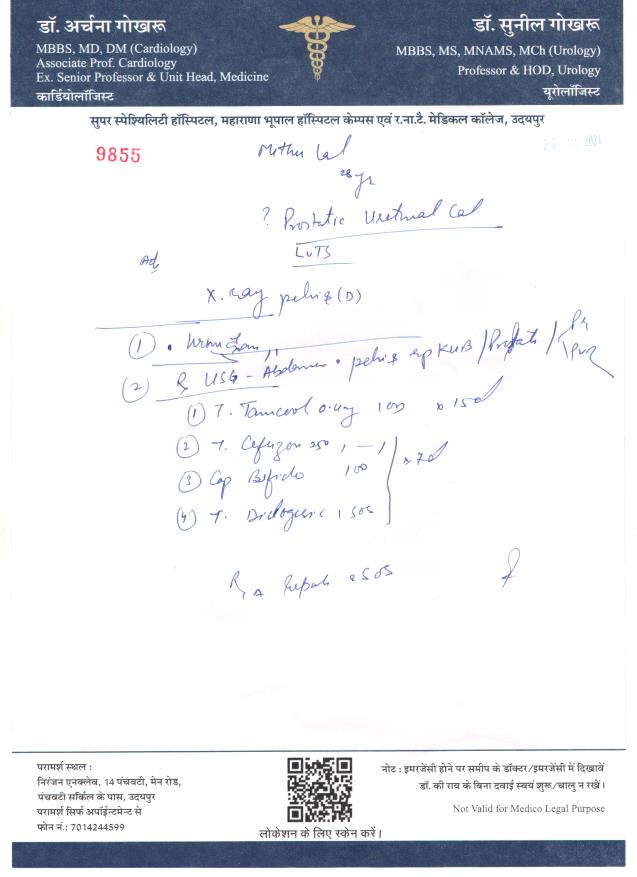 डॉ. अर्चना गोखरू
MBBS, MD, DM (Cardiology)
Associate Prof. Cardiology
Ex. Senior Professor & Unit Head, Medicine
कार्डियोलॉजिस्ट
डॉ. सुनील गोखरू
MBBS, MS, MNAMS, MCh (Urology)
Professor & HOD, Urology
यूरोलॉजिस्ट
सुपर स्पेश्यिलिटी हॉस्पिटल, महाराणा भूपाल हॉस्पिटल केम्पस एवं र.ना.टै. मेडिकल कॉलेज, उदयपुर
9855
22 2024
Mithu Lal
28 yr
? Prostatic Urethral Cal
LUTS
Adv
X.ray pelvis (D)
1 .
2 USG - Abdomen . pelvis KUB / Prostate /
PVR
1 T. 0.4mg x 15d
2 T. 250 1 - 1 x 7d
3 Cap Bifido
4 T. 1 SOS
SOS
परामर्श स्थल :
निरंजन एनक्लेव, 14 पंचवटी, मेन रोड,
पंचवटी सर्किल के पास, उदयपुर
परामर्श सिर्फ अपॉईन्टमेन्ट से
फोन नं.: 7014244599
लोकेशन के लिए स्केन करें।
नोट : इमरजेंसी होने पर समीप के डॉक्टर/इमरजेंसी में दिखावें
डॉ. की राय के बिना दवाई स्वयं शुरू/चालु न रखें।
Not Valid for Medico Legal Purpose